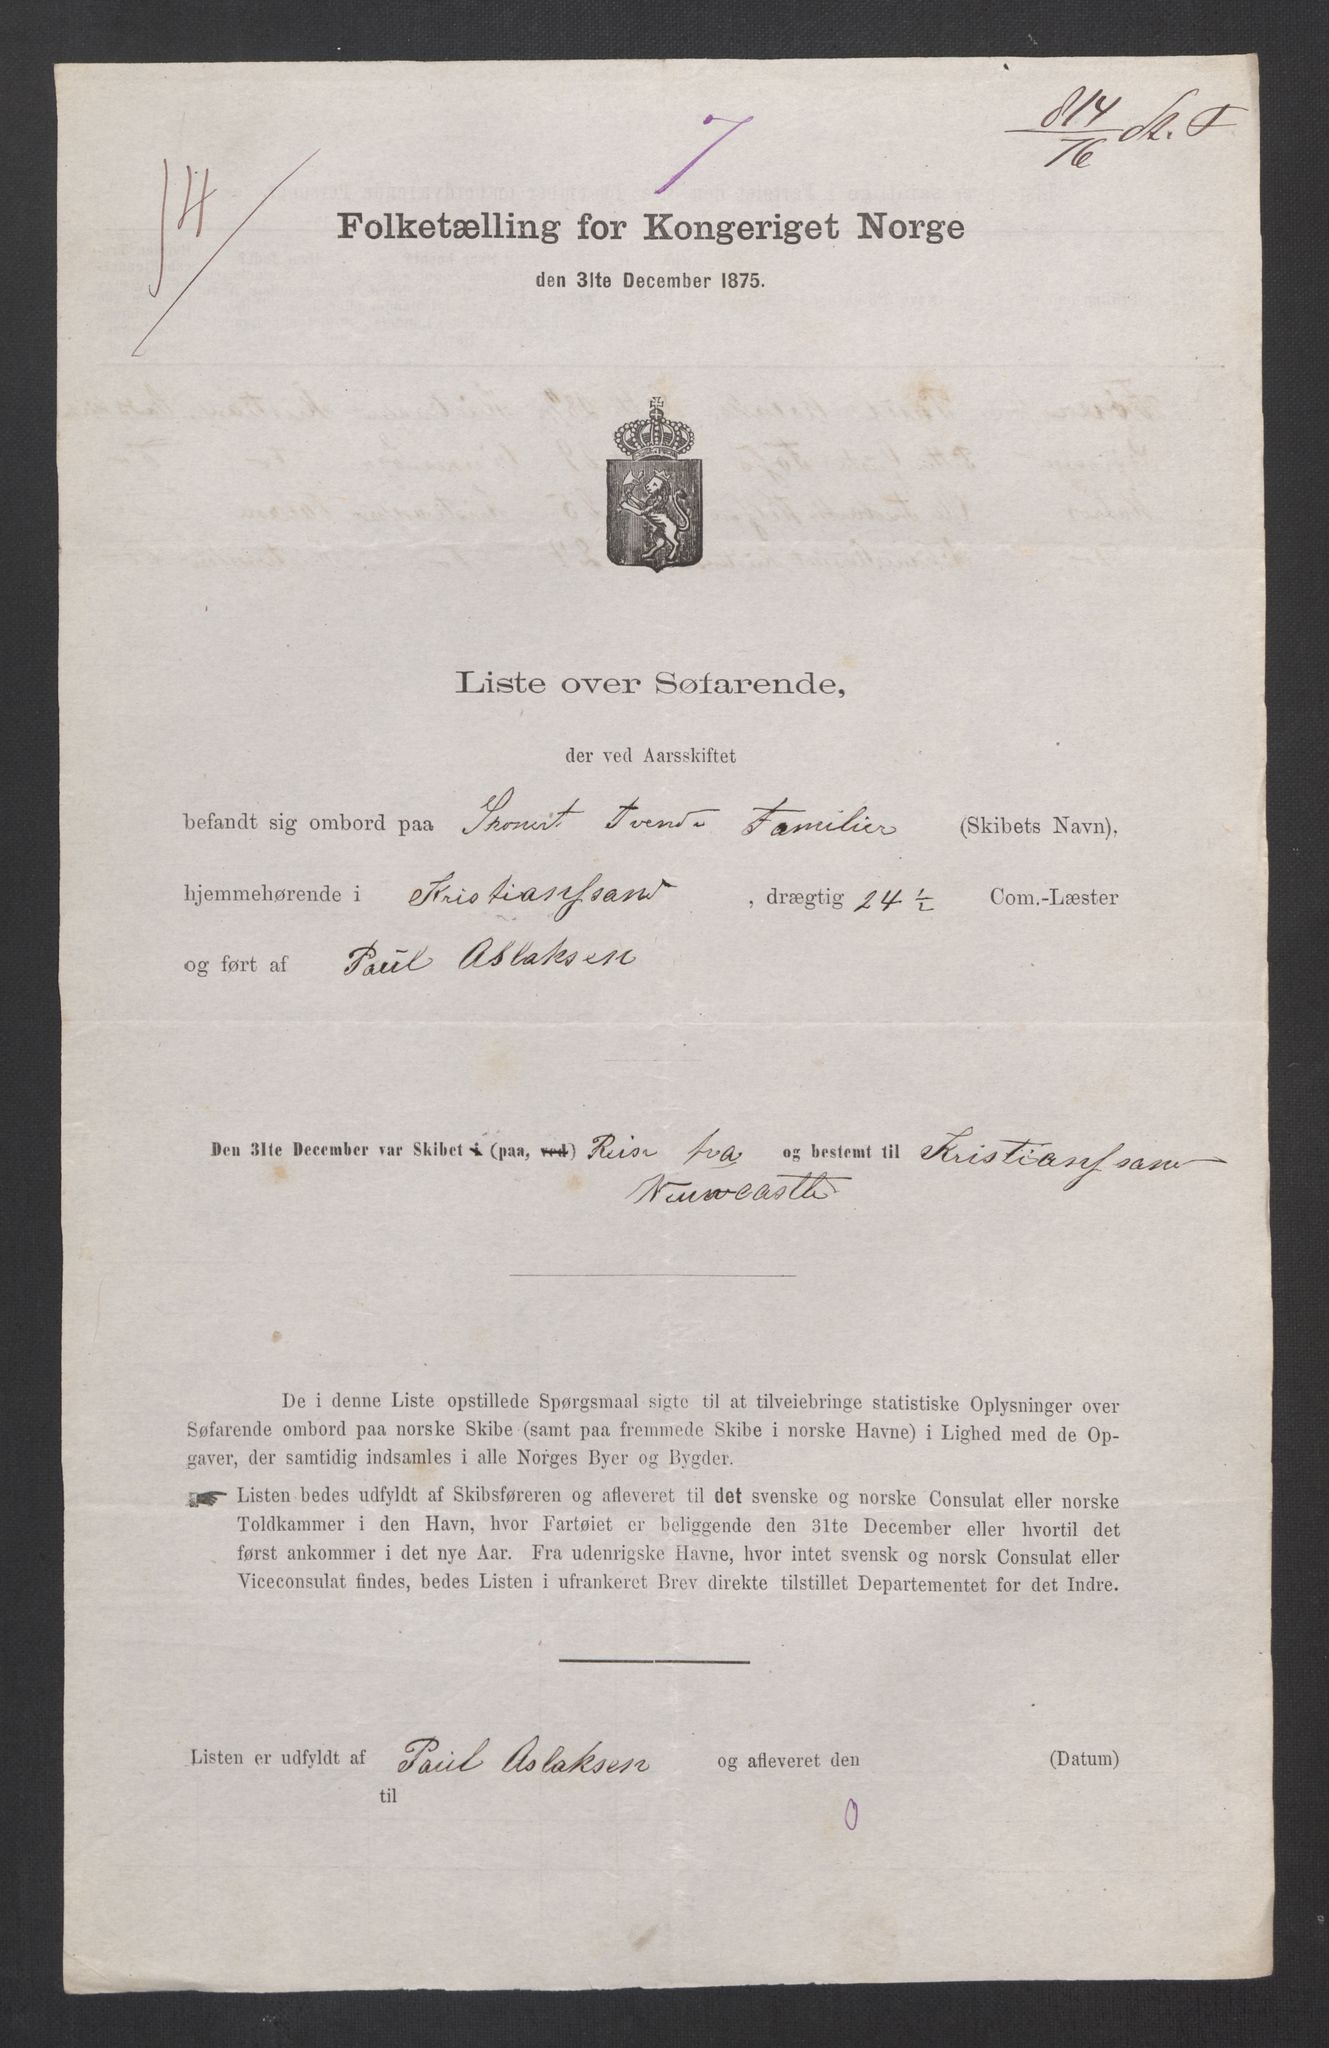 814/76 St. T
7
14
Folketælling for Kongeriget Norge
den 31te December 1875.
Liste over Søfarende,
der ved Aarsskiftet
befandt sig ombord paa Skonert Tvende Familier (Skibets Navn),
hjemmehørende i Kristianssand , drægtig 24 ½ Com.-Læster
og ført af Paul Aslaksen
Den 31te December var Skibet i (paa, ved) Reise fra og bestemt til Kristianssand
Newcastle
De i denne Liste opstillede Spørgsmaal sigte til at tilveiebringe statistiske Oplysninger over
Søfarende ombord paa norske Skibe (samt paa fremmede Skibe i norske Havne) i Lighed med de Op-
gaver, der samtidig indsamles i alle Norges Byer og Bygder.
☛ Listen bedes udfyldt af Skibsføreren og afleveret til det svenske og norske Consulat eller norske
Toldkammer i den Havn, hvor Fartøiet er beliggende den 31te December eller hvortil det
først ankommer i det nye Aar. Fra udenrigske Havne, hvor intet svensk og norsk Consulat eller
Viceconsulat findes, bedes Listen i ufrankeret Brev direkte tilstillet Departementet for det Indre.
Listen er udfyldt af Paul Aslaksen og afleveret den (Datum)
til
0